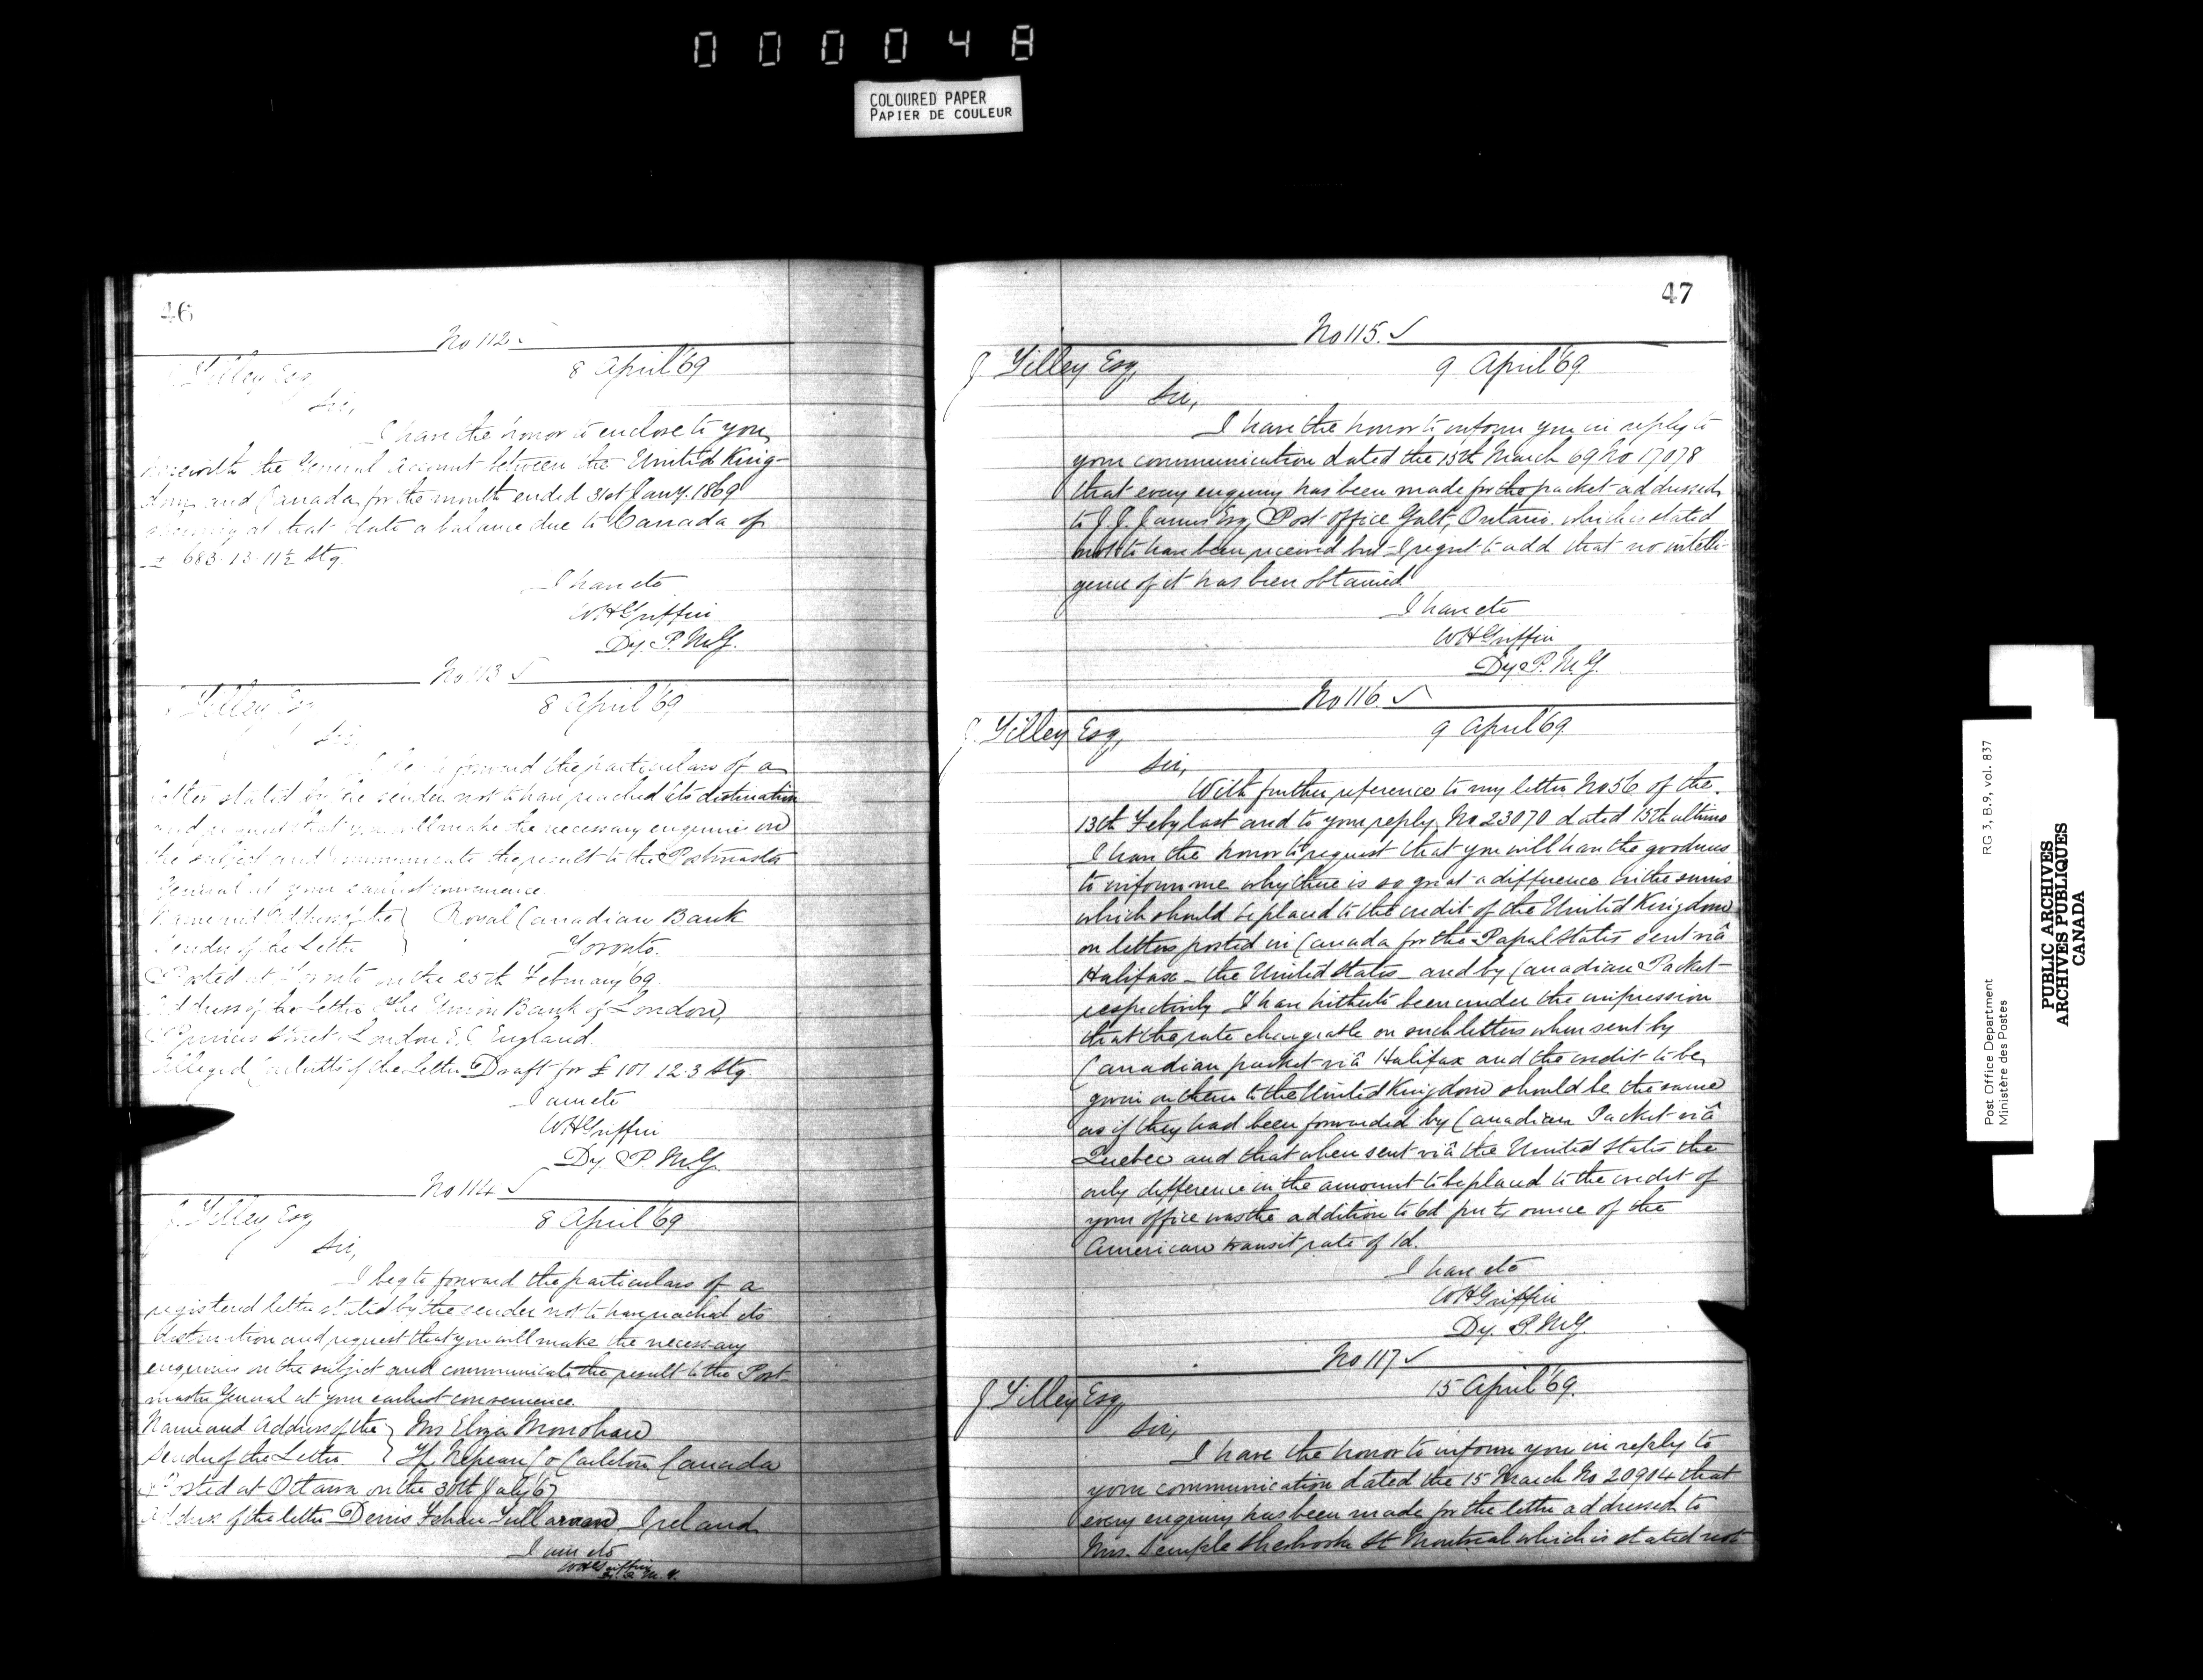 000048
COLOURED PAPER
PAPIER DE COULEUR
46
No 112
J Tilley Esq
8 April '69
Sir,
I have the honor to enclose to you
herewith the General Account between the United King-
dom and Canada for the month ended 31st Jany. 1869
at that date a balance due to Canada of
£ 683. 13. 11½ Stg.
I have etc
W H Griffin
Dy. P. M. G.
No 113
J Tilley Esq
8 April '69
Sir,
I beg to forward the particulars of a
letter stated by the sender not to have reached its destination
and request that you will make the necessary enquiries on
the subject and communicate the result to the Postmaster
General at your earliest convenience.
Name and Address of the } Royal Canadian Bank
Sender of the Letter } Toronto.
Posted at Toronto on the 25th February '69.
Address of the Letter The Union Bank of London,
Princes Street London E.C. England.
Alleged Contents of the Letter Draft for £ 101. 12. 3 Stg.
I am etc
W H Griffin
Dy. P. M. G.
No 114
J. Tilley Esq,
8 April '69
Sir,
I beg to forward the particulars of a
registered letter stated by the sender not to have reached its
destination and request that you will make the necessary
enquiries on the subject and communicate the result to the Post-
master General at your earliest convenience.
Name and Address of the } Mrs Eliza Monohan
Sender of the Letter } Nepean Co Carleton Canada
Posted at Ottawa on the 30th July '67
Address of the letter Denis Ireland
I am etc
W H Griffin
Dy. P. M. G.
47
No 115.
J Tilley Esq,
9 April '69
Sir,
I have the honor to inform you in reply to
your communication dated the 15th March 69 No 17078
that every enquiry has been made for the packet addressed
to J. J. James Esq, Post Office Galt, Ontario. which is stated
not to have been received but I regret to add that no intelli-
gence of it has been obtained.
I have etc
W H Griffin
Dy. P. M. G.
No 116.
J. Tilley Esq,
9 April '69
Sir,
With further reference to my letter No 56 of the
13th Feby last and to your reply No 23070 dated 15th ultimo
I have the honor to request that you will have the goodness
to inform me why there is so great a difference in the sums
which should be placed to the credit of the United Kingdom
on letters posted in Canada for the Papal States sent viâ
Halifax – the United States – and by Canadian Packet –
respectively I have hitherto been under the impression
that the rate chargeable on such letters when sent by
Canadian packet viâ Halifax and the credit to be
given on them to the United Kingdom should be the same
as if they had been forwarded by Canadian Packet viâ
Quebec and that when sent viâ the United States the
only difference in the amount to be placed to the credit of
your office was the addition to 6d per ¼ ounce of the
American transit rate of 1d.
I have etc
W H Griffin
Dy. P. M. G.
No 117
J Tilley Esq,
15 April '69.
Sir,
I have the honor to inform you in reply to
your communication dated the 15 March No 20904 that
every enquiry has been made for the letter addressed to
Mrs. Semple Sherbrooke St Montreal which is stated not
Post Office Department
Ministère des Postes
RG 3, B.9, vol. 837
PUBLIC ARCHIVES
ARCHIVES PUBLIQUES
CANADA